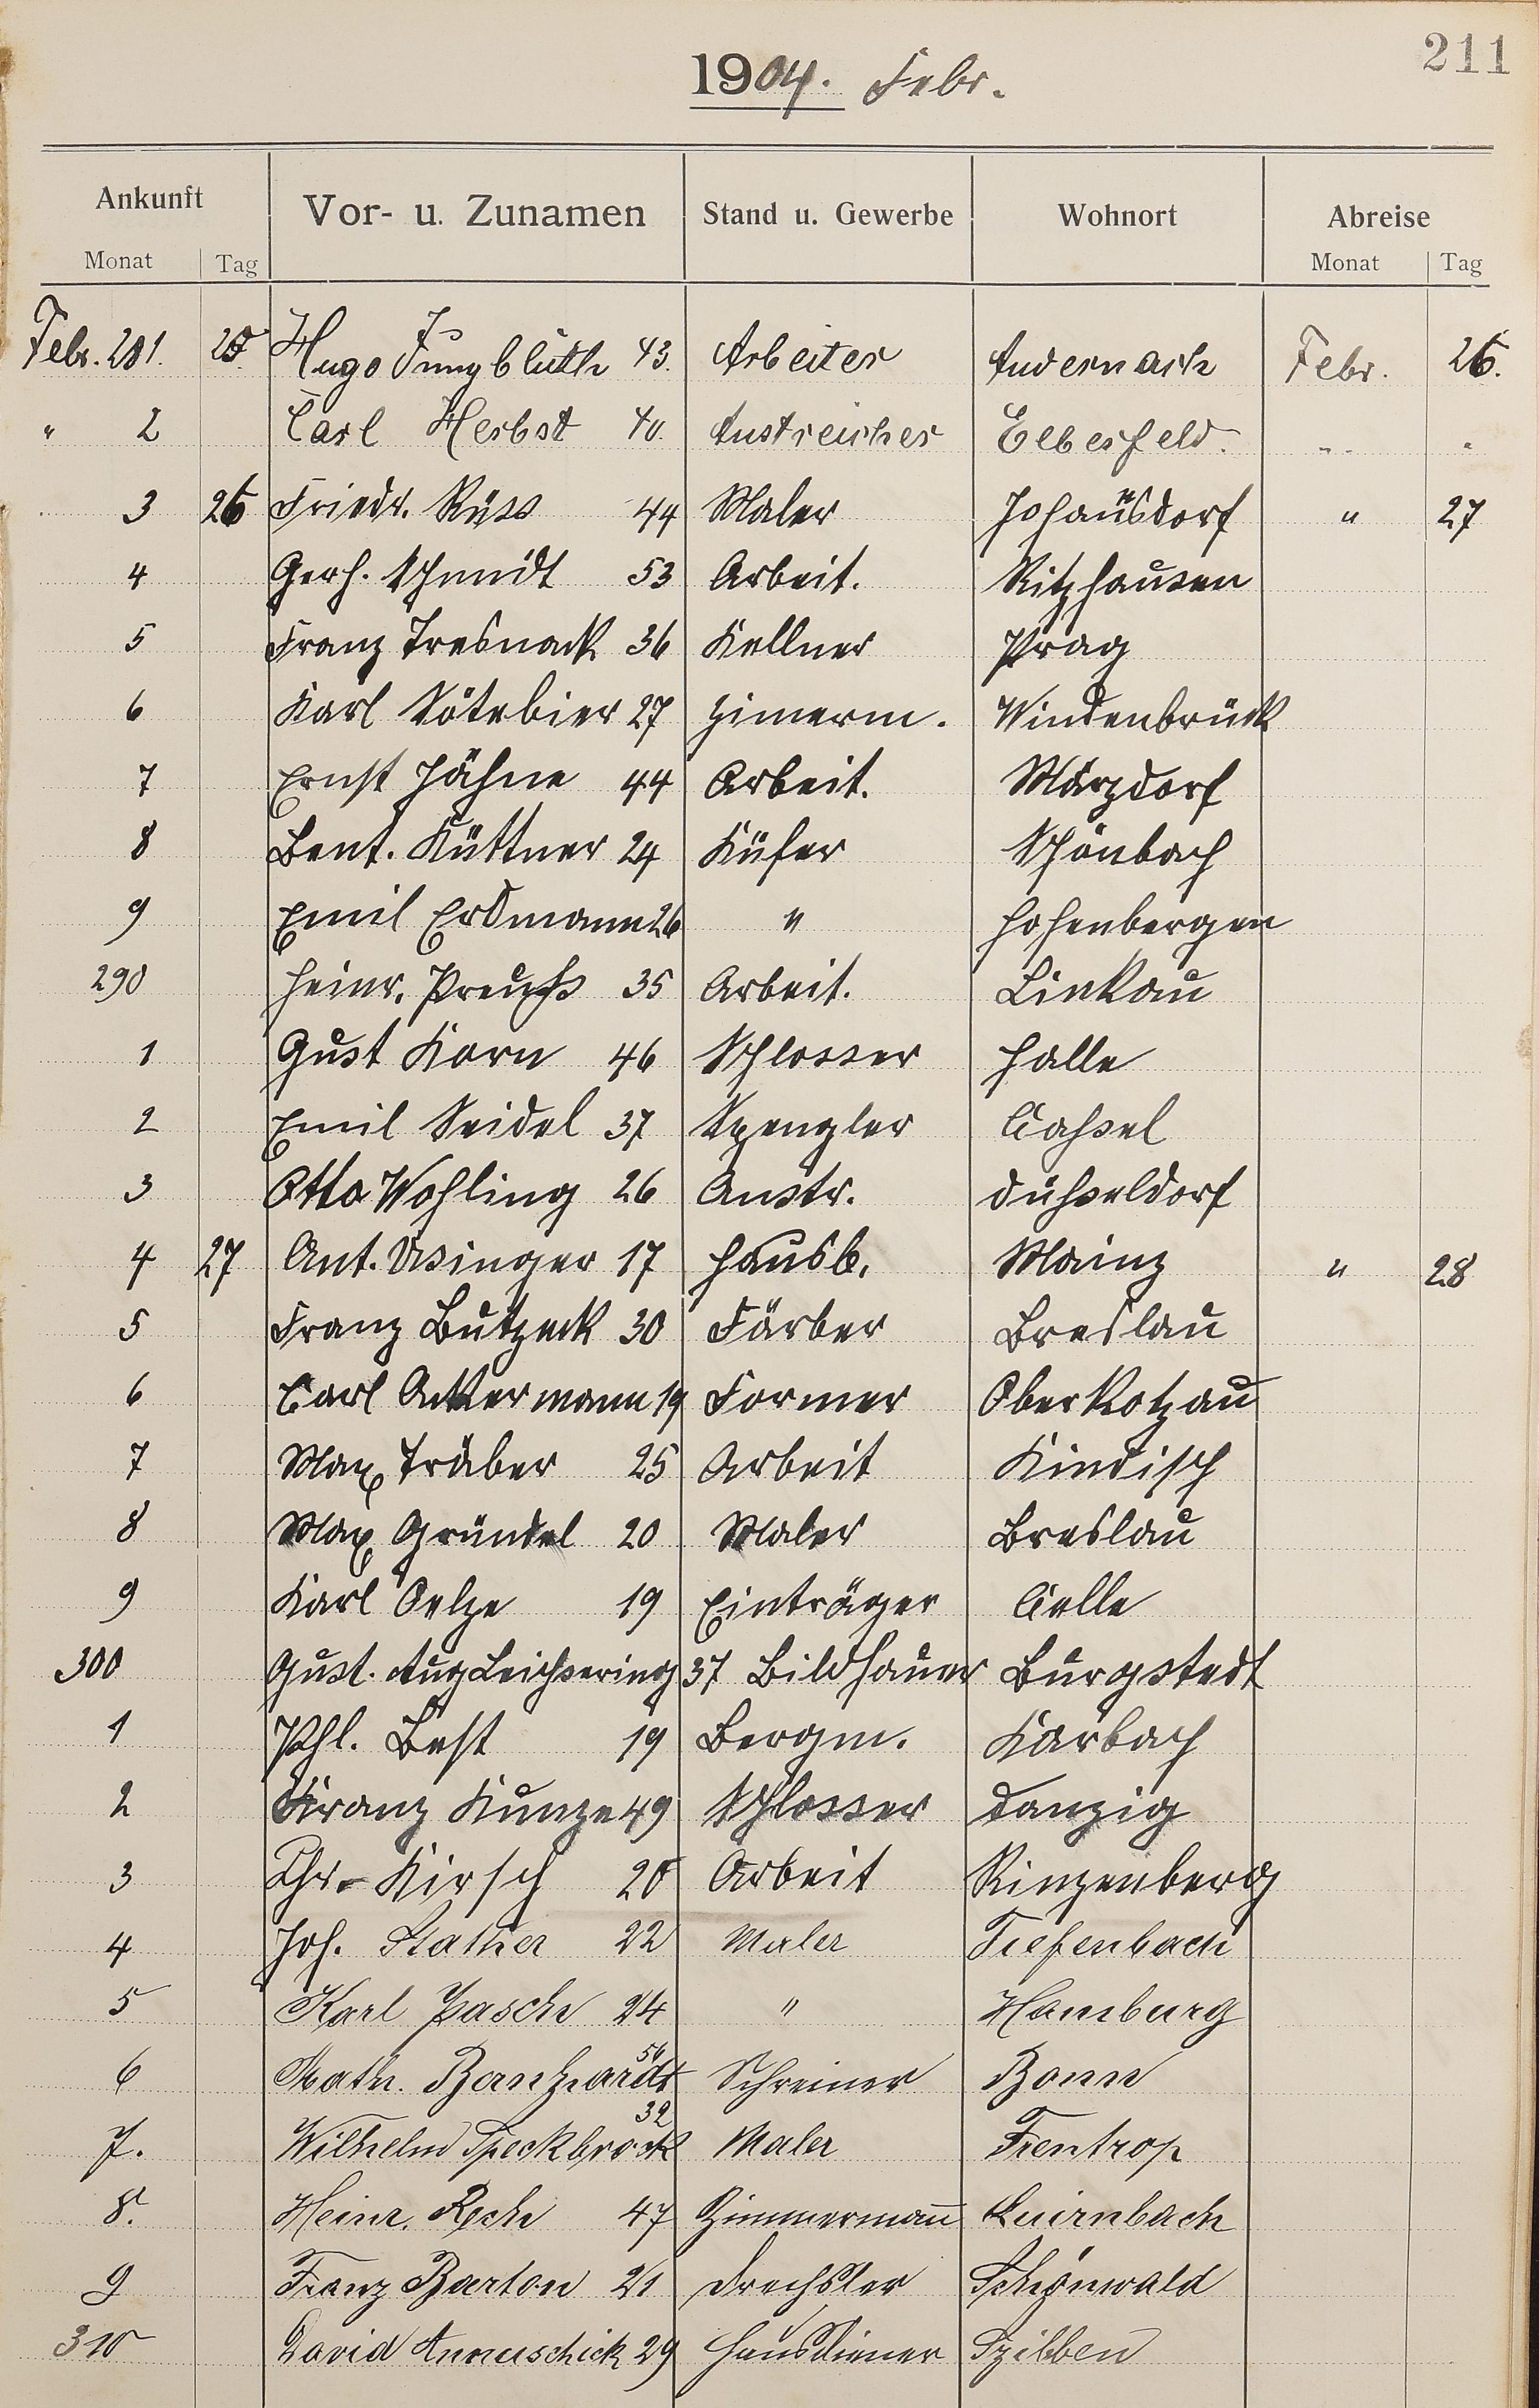 211
1904. Febr.
Ankunft Vor- u. Zunamen Stand u. Gewerbe Wohnort Abreise
Monat Tag Monat Tag
Febr. 281. 25. Hugo Jungbluth 43. Arbeiter Andernach Febr. 26.
" 2 Carl Herbst 40. Anstreicher Elberfeld. " "
3 26 Friedr. Küss 44 Maler Johannsdorf " 27
4 Gerh. Schmidt 53 Arbeit. Ritzhausen
5 Franz Tresnack 36 Kellner Prag
6 Karl Sötebier 27 Zimerm. Windenbrück
7 Ernst Jähne 44 Arbeit. Märzdorf
8 Bent. Küttner 24 Küfer Schönbach
9 Emil Erdmann 26 " Hohenbergen
290 Heinr. Preuß 35 Arbeit. Linkau
1 Gust Korn 46 Schlosser Halle
2 Emil Seidel 37 Spengler Cassel
3 Otto Wohling 26 Anstr. Düsseldorf
4 27 Ant. Usinger 17 Hausb. Mainz " 28
5 Franz Butzeck 30 Färber Breslau
6 Carl Ackermann 19 Former Oberkotzau
7 Max Träber 25 Arbeit Kindisch
8 Max Gründel 20 Maler Breslau
9 Karl Oelze 19 Einträger Celle
300 Gust. Aug Leichsering 37 Bildhauer Burgstedt
1 Phl. Best 19 Bergm. Karbach
2 Franz Kunze 49 Schlosser Danzig
3 Chr. Kirsch 20 Arbeit Ringenberg
4 Joh. Stather 22 Maler Tiefenbach
5 Karl Pasch 24 " Hamburg
6 Math. Bernhardt 50 Schreiner Bonn
7. Wilhelm Speckbrock 32 Maler Frentrop
8. Heinr. Resch 47 Zimmermann Quirnbach
9 Franz Barton 21 Drechsler Schönwald
310 David Annuschick 29 Hausdiener Szibben